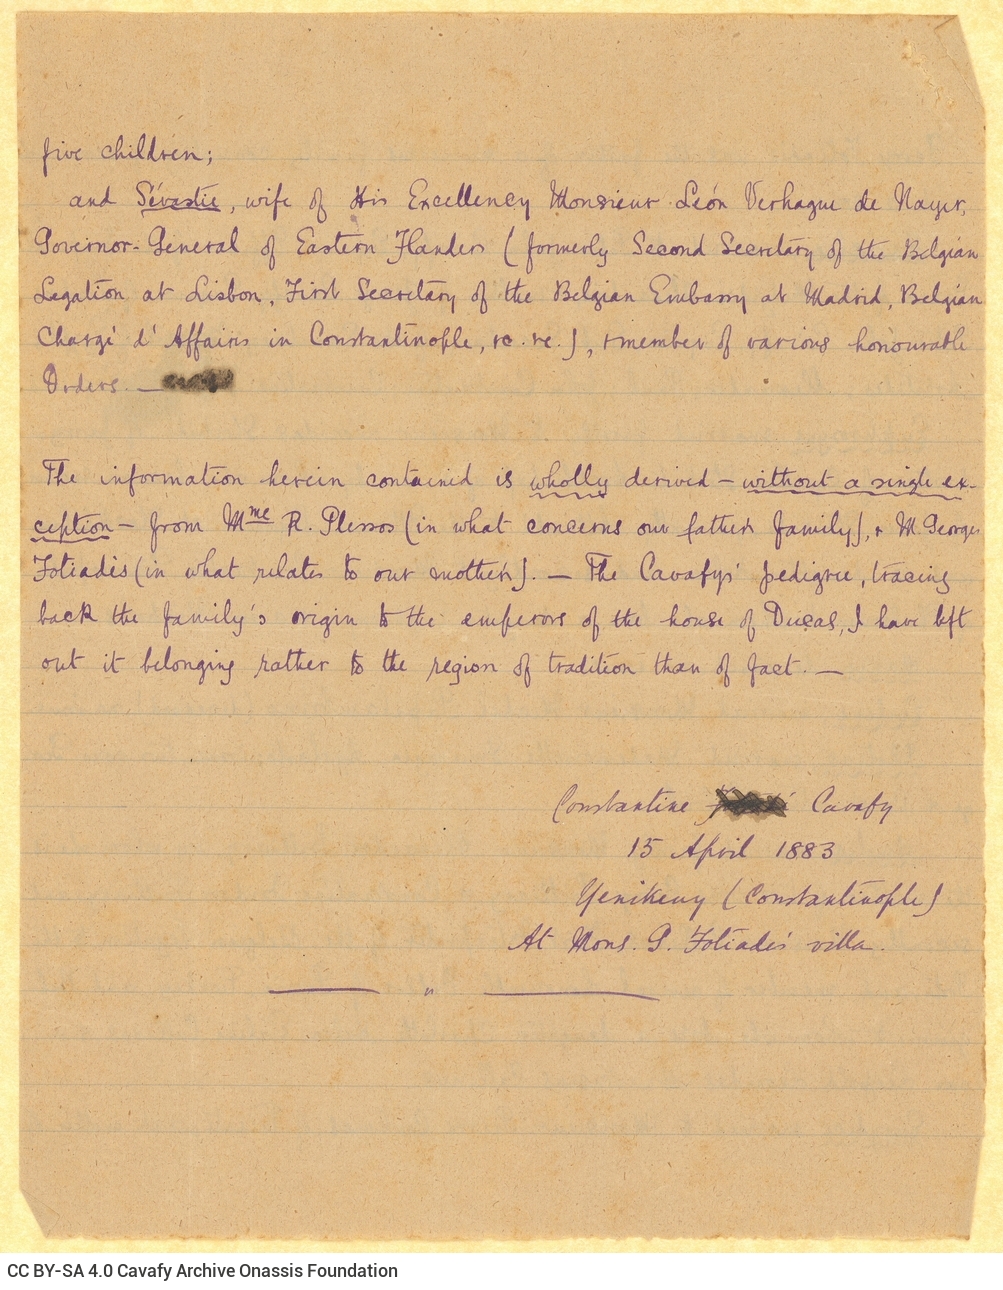 five children;
and Sévastie, wife of His Excellency Monsieur Léon Verhague de Nayer,
Governor-General of Eastern Flanders (formerly Second Secretary of the Belgian
Legation at Lisbon, First Secretary of the Belgian Embassy at Madrid, Belgian
Chargé d'Affaires in Constantinople, &c. &c.), & member of various honourable
Orders. —
The information herein contained is wholly derived – without a single ex-
ception – from Mme R. Plessos (in what concerns our father's family), & M. Georges
Fotiadès (in what relates to our mother's). — The Cavafys' pedigree, tracing
back the family's origin to the emperors of the house of Ducas, I have left
out it belonging rather to the region of tradition than of fact. —
Constantine Cavafy
15 April 1883
Yenikeuy (Constantinople)
At Mons. G. Fotiadès' villa.
CC BY-SA 4.0 Cavafy Archive Onassis Foundation